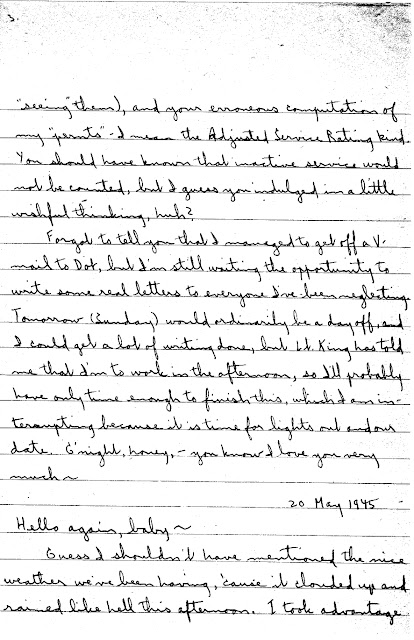 3.
"seeing" them), and your erroneous computation of
my "points" - I mean the Adjusted Service Rating kind.
You should have known that inactive service would
not be counted, but I guess you indulged in a little
wishful thinking, huh?
Forgot to tell you that I managed to get off a V-
mail to Dot, but I'm still waiting the opportunity to
write some real letters to everyone I've been neglecting.
Tomorrow (Sunday) would ordinarily be a day off, and
I could get a lot of writing done, but Lt. King has told
me that I'm to work in the afternoon, so I'll probably
have only time enough to finish this, which I am in-
terrupting because it is time for lights out and our
date. G'night, honey, - you know I love you very
much ~
20 May 1945
Hello again, baby ~
Guess I shouldn't have mentioned the nice
weather we've been having, 'cause it clouded up and
rained like hell this afternoon. I took advantage